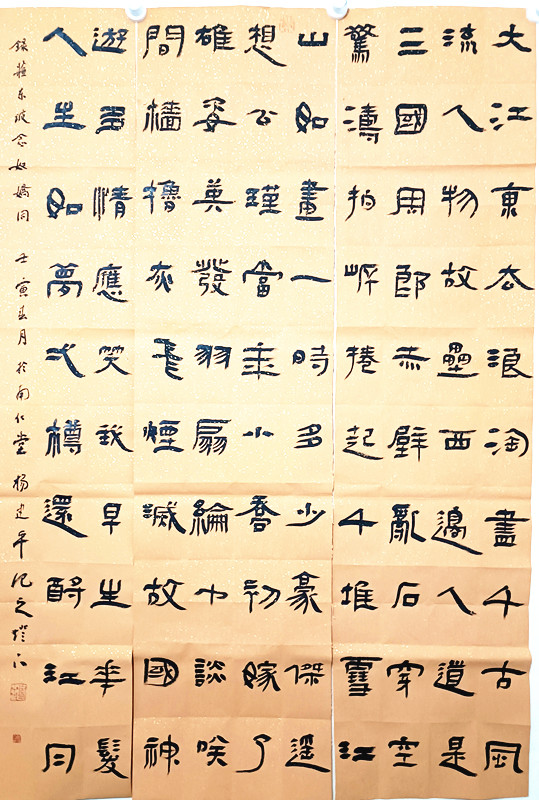 大江東去浪淘盡千古風
流人物故壘西邊人道是
三國周郎赤壁亂石穿空
驚濤拍岸捲起千堆雪江
山如畫一時多少豪傑遥
想公瑾當年小喬初嫁了
雄姿英發羽扇綸巾談咲
間檣櫓灰飛煙滅故國神
遊多情應笑我早生華髮
人生如夢弌樽還酹江月
錄蘇東坡念奴嬌詞 壬寅春月於南仁堂 楊建平記之